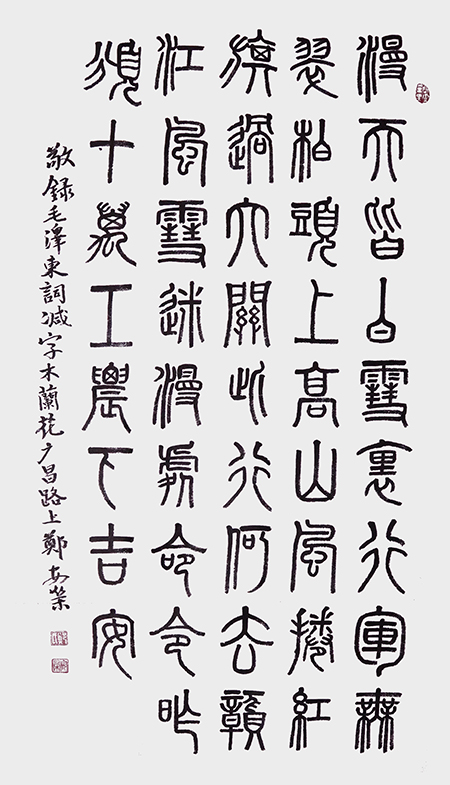 漫天皆白雪裏行軍無
翠柏頭上高山風捲紅
旗過大關此行何去贛
江風雪迷漫處命令昨
頒十萬工農下吉安
敬錄毛澤東詞减字木蘭花广昌路上鄭